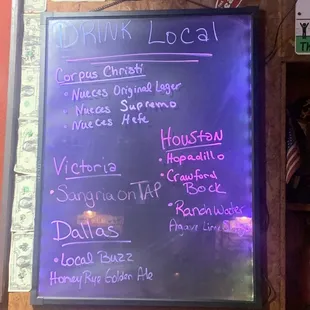 DRINK Local
Corpus Christi
• Nueces Original Lager
• Nueces Supremo
• Nueces Hefe
Houston
• Hopadillo
• Crawford
Bock
• Ranch Water
Agave Lime
Victoria
• Sangria on TAP
Dallas
• Local Buzz
Honey Rye Golden Ale